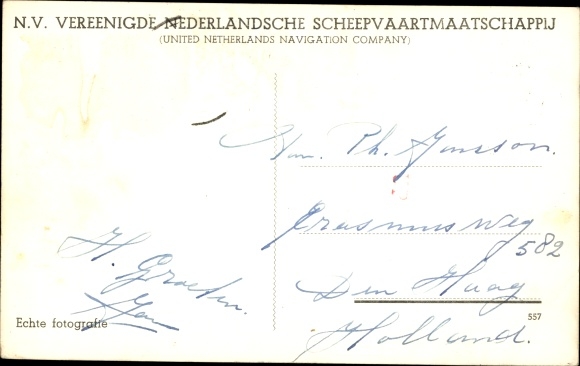 N.V. VEREENIGDE NEDERLANDSCHE SCHEEPVAARTMAATSCHAPPIJ
(UNITED NETHERLANDS NAVIGATION COMPANY)
H. Groeten.
Jan
Echte fotografie
Ph. Jansson.
Erasmusweg
582
Den Haag
557
Holland.